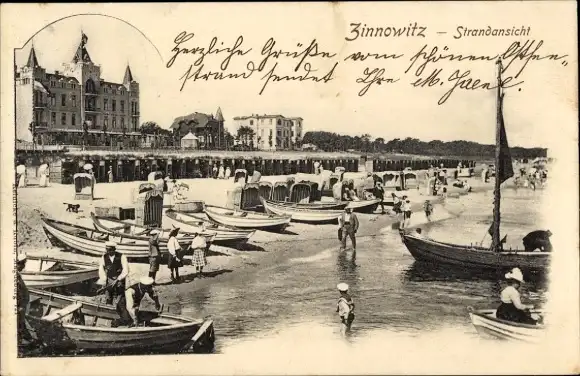 Zinnowitz – Strandansicht
Herzliche Grüße vom schönen Ostsee„
strand sendet Ihre M. Jaene.